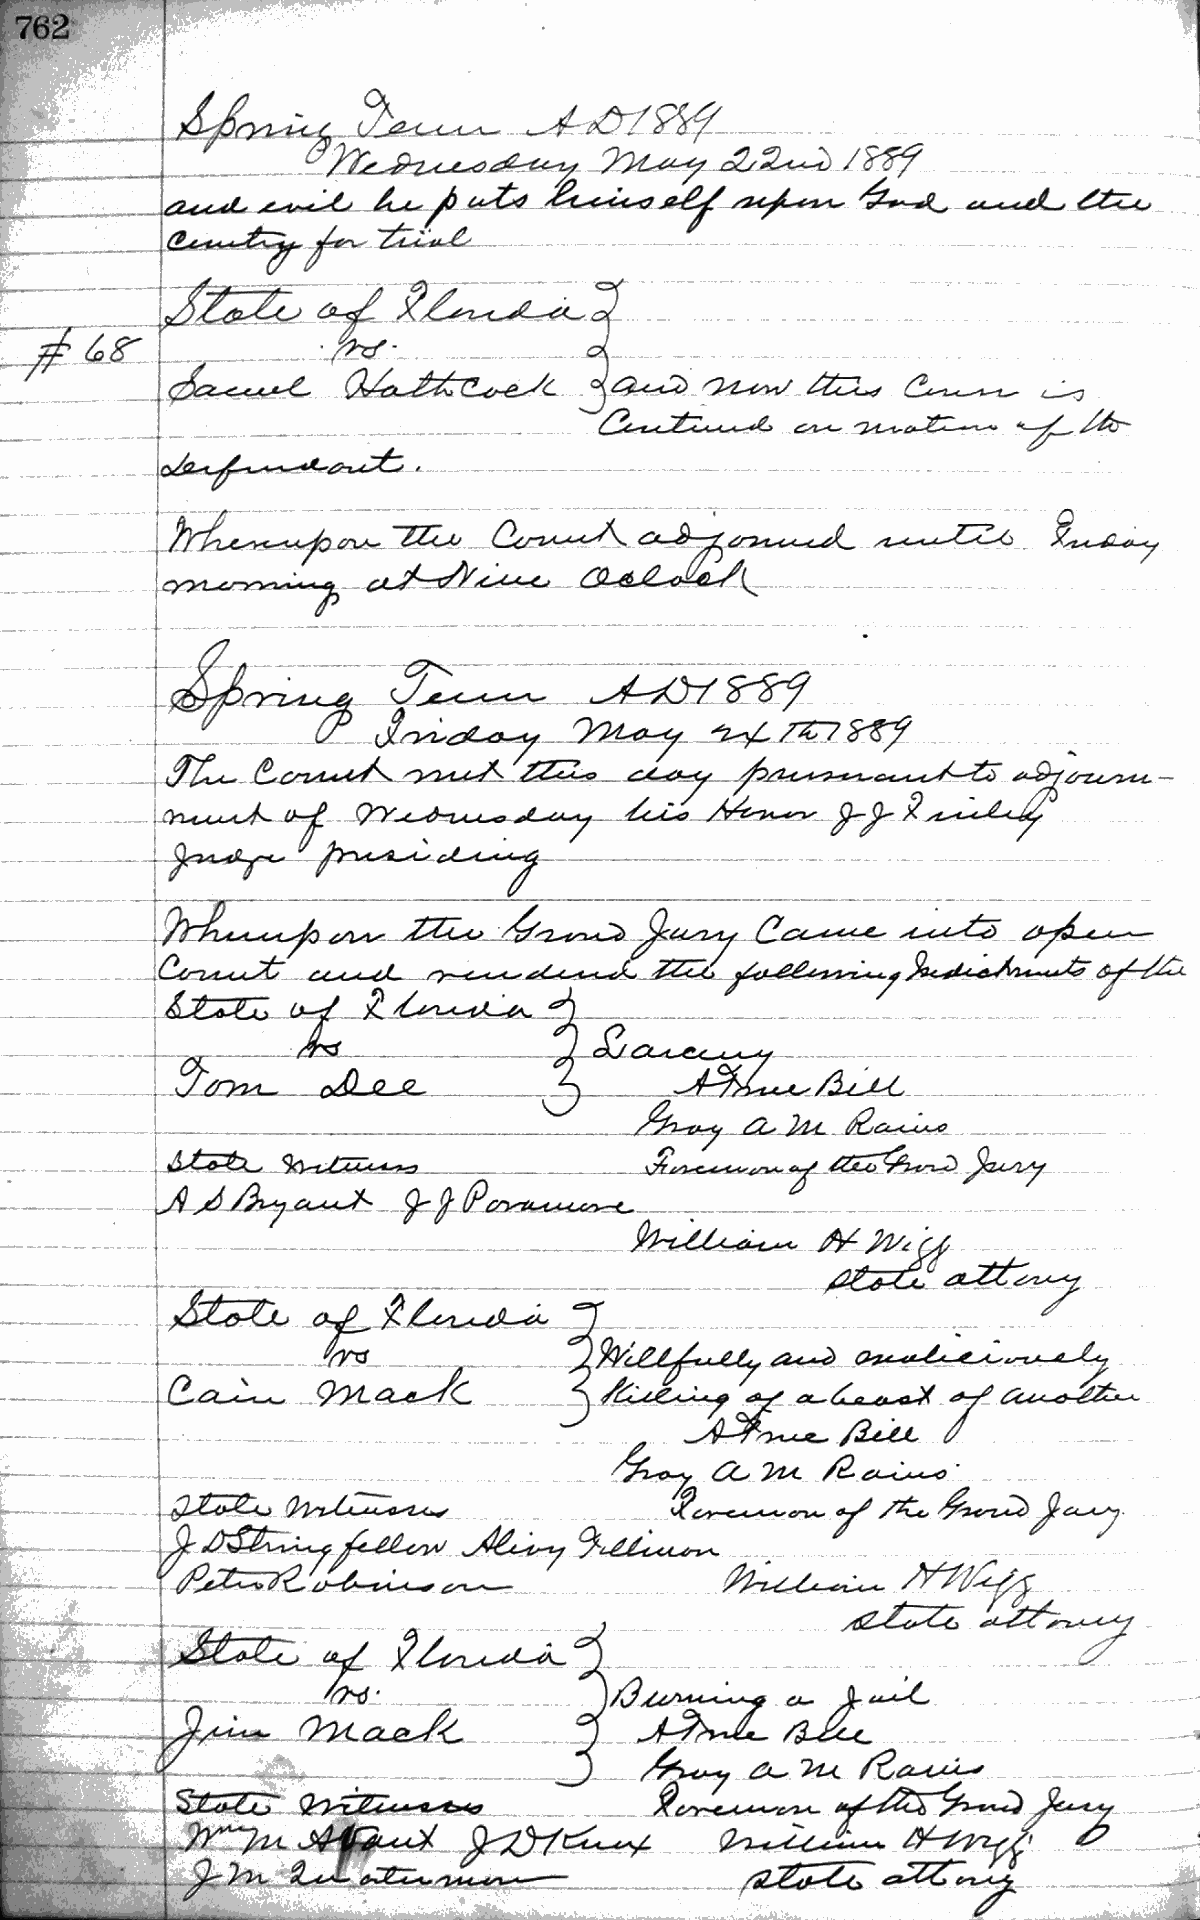 762
Spring Term AD 1889
Wednesday May 22nd 1889
and evil he puts himself upon God and the
country for trial
State of Florida
vs.
# 68
Samuel Hathcock and now this Cause is
Continued on motion of the
defendant.
Whereupon the Court adjourned until Friday
morning at Nine Oclock
Spring Term AD 1889
Friday May 24th 1889
The Court met this day pursuant to adjourn-
ment of Wednesday his Honor J J Finley
Judge presiding
Whereupon the Grand Jury Came into open
Court and rendered the following Indictments of the
State of Florida
vs Larceny
Tom Dee A True Bill
Gray A M Rains
State Witness Foreman of the Grand Jury
A S Bryant J J Paramore
William H Wigg
state attorny
State of Florida
vs Willfully and maliciously
Cain Mack Killing of a beast of another
A True Bill
Gray A M Rains
State Witnesses Foreman of the Grand Jury
J D Stringfellow Fillmon
Peter Robinson William H Wigg
state attorney
State of Florida
vs. Burning a Jail
Jim Mack A True Bill
Gray A M Rains
State Witnesses Foreman of the Grand Jury
Wm M J D Knox William H Wigg
J M Quaterman state attorny